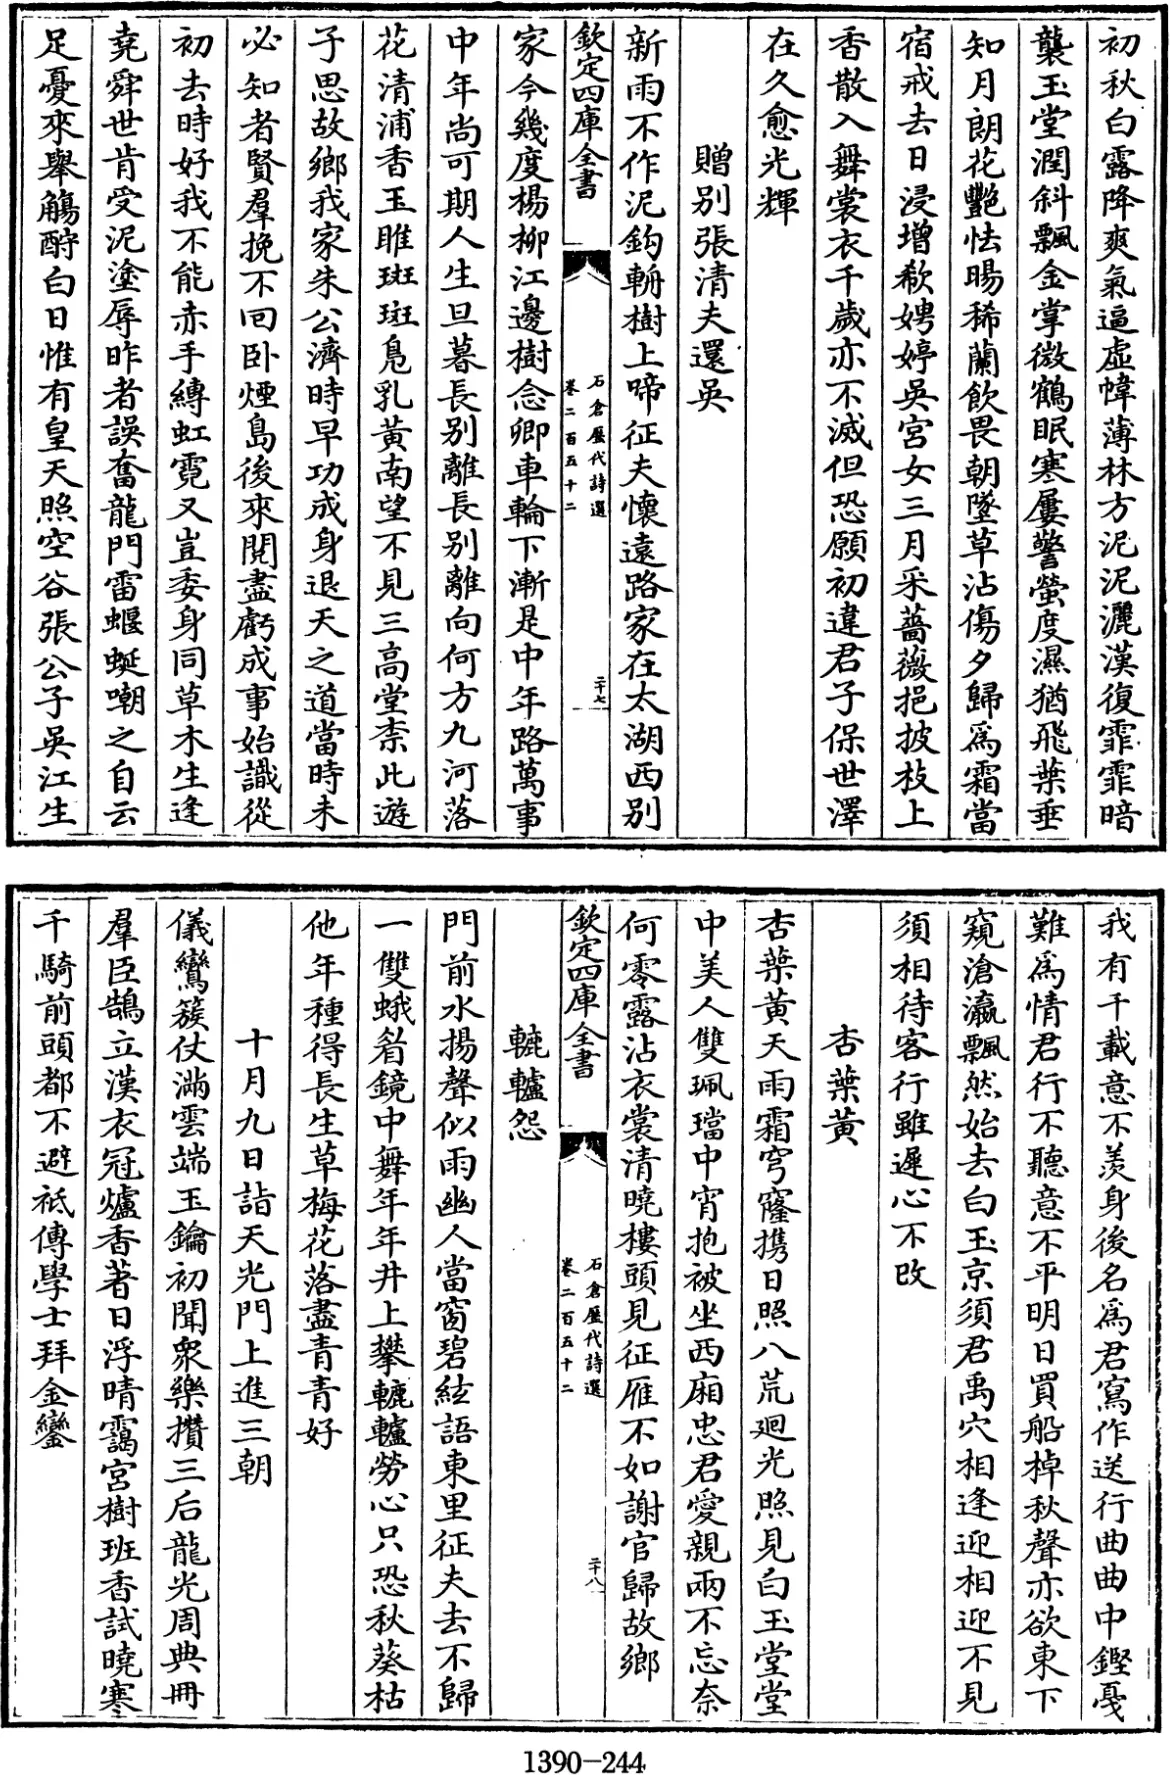 初秋白露降爽氣逼虛幃薄林方泥泥灑漢復霏霏暗
襲玉堂潤斜飄金掌微鶴眠寒屢警螢度濕猶飛葉垂
知月朗花艷怯暘稀蘭飲畏朝墜草沾傷夕歸爲霜當
宿戒去日浸增欷娉婷吳宮女三月采薔薇挹披枝上
香散入舞裳衣千歲亦不滅但恐願初違君子保世澤
在久愈光輝
贈別張清夫還吳
新雨不作泥鈎輈樹上啼征夫懷遠路家在太湖西別
欽定四庫全書
石倉歷代詩選
卷二百五十二
二十七
家今幾度楊柳江邊樹念卿車輪下漸是中年路萬事
中年尚可期人生旦暮長別離長別離向何方九河落
花清浦香玉睢斑斑鳧乳黄南望不見三高堂柰此遊
子思故鄉我家朱公濟時早功成身退天之道當時未
必知者賢羣挽不回卧煙島後來閱盡虧成事始識從
初去時好我不能赤手縛虹霓又豈委身同草木生逢
堯舜世肯受泥塗辱昨者誤奮龍門雷蝘蜒嘲之自云
足憂來舉觴酹白日惟有皇天照空谷張公子吳江生
我有千載意不羨身後名爲君寫作送行曲曲中鏗戞
難爲情君行不聽意不平明日買船棹秋聲亦欲東下
窺滄瀛飄然始去白玉京須君禹穴相逢迎相迎不見
須相待客行雖遲心不改
杏葉黄
杏葉黄天雨霜穹窿携日照八荒廻光照見白玉堂堂
中美人雙珮璫中宵抱被坐西廂忠君愛親兩不忘奈
何零露沾衣裳清曉樓頭見征雁不如謝官歸故鄉
欽定四庫全書
石倉歷代詩選
卷二百五十二
二十八
轆轤怨
門前水揚聲似雨幽人當窗碧絃語東里征夫去不歸
一雙蛾眉鏡中舞年年井上攀轆轤勞心只恐秋葵枯
他年種得長生草梅花落盡青青好
十月九日詣天光門上進三朝
儀鸞簇仗滿雲端玉鑰初聞衆樂攢三后龍光周典冊
羣臣鵠立漢衣冠爐香著日浮晴靄宮樹班香試曉寒
千騎前頭都不避祗傳學士拜金鑾
1390-244